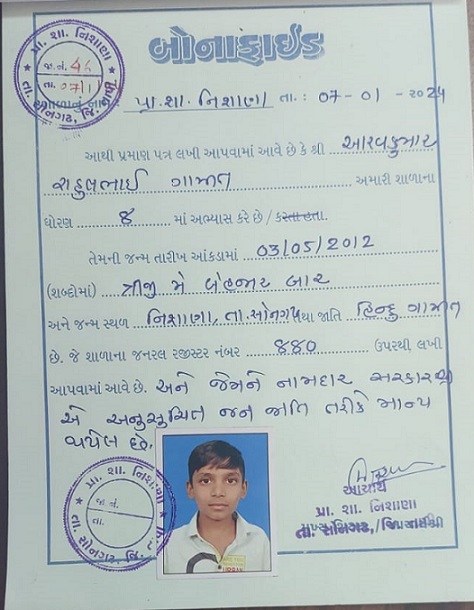 પ્રા. શા. નિશાણા
જા.નં. 46
તા. 07/1
તા. સોનગઢ, જિ. તાપી
બોનાફાઈડ
પ્રા. શા. નિશાણા તા. : 07-01-2024
આથી પ્રમાણ પત્ર લખી આપવામાં આવે છે કે શ્રી આરવકુમાર
રાહુલભાઈ ગામીત અમારી શાળાના
ધોરણ 8 માં અભ્યાસ કરે છે / કરતા હતા.
તેમની જન્મ તારીખ આંકડામાં 03/05/2012
(શબ્દોમાં) ત્રીજી મે બેહજાર બાર
અને જન્મ સ્થળ નિશાણા, તા. સોનગઢ તથા જાતિ હિન્દુ ગામીત
છે. જે શાળાના જનરલ રજીસ્ટર નંબર 880 ઉપરથી લખી
આપવામાં આવે છે. અને જેમને નામદાર સરકારશ્રી
એ અનુસુચિત જન જાતિ તરીકે માન્ય
થયેલ છે.
પ્રા. શા. નિશાણા
જા.નં.
તા.
તા. સોનગઢ, જિ.
આચાર્ય
પ્રા. શા. નિશાણા
તા. સોનગઢ, જિ.